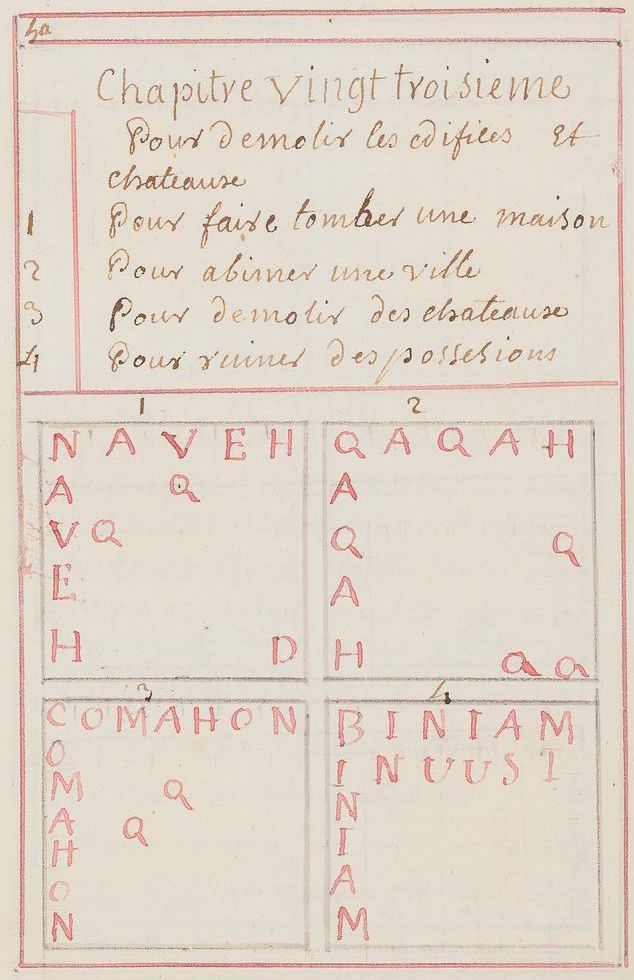 Chapitre vingt troisieme
Pour demolir les edifices Et
chateause
1 Pour faire tomber une maison
2 Pour abimer une ville
3 Pour demolir des chateause
4 Pour ruiner des possesions
1
N A V E H
A Q
V Q
E
H D
2
Q A Q A H
A
Q Q
A
H Q Q
3
C O M A H O N
O
M Q
A Q
H
O
N
4
B I N I A M
I N U U S I
N
I
A
M